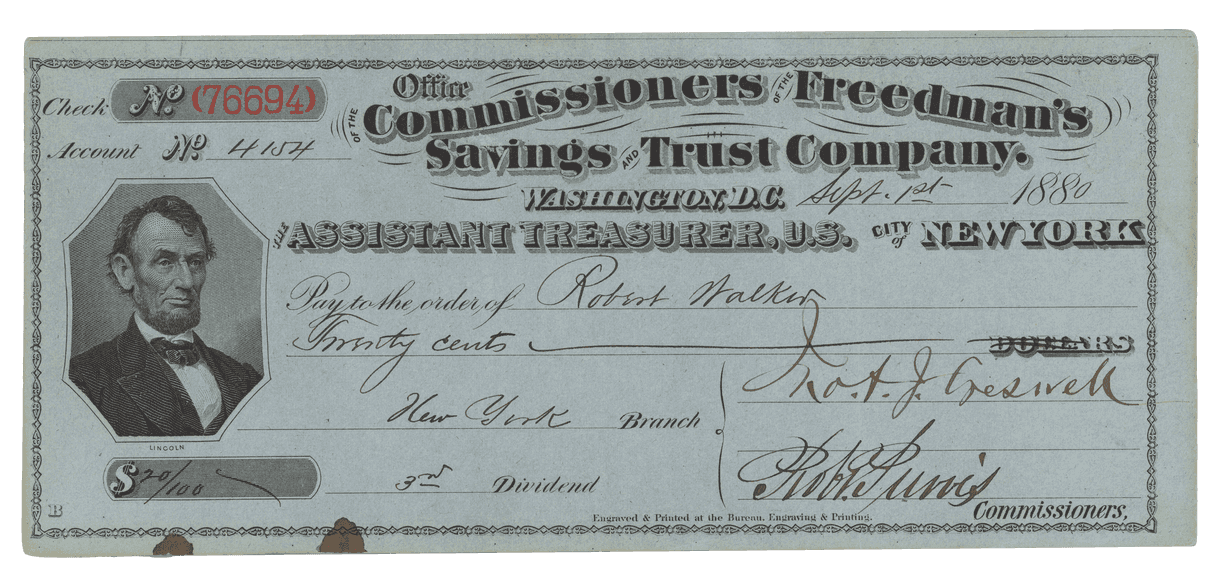 Check No (76694)
Account No 4154
Office
OF THE Commissioners OF THE Freedman's
Savings AND Trust Company.
WASHINGTON, D.C. Sept. 1st 1880
THE ASSISTANT TREASURER, U.S. CITY of NEW YORK
Pay to the order of Robert Walker
Twenty cents DOLLARS
Jno. A. J. Creswell
New York Branch
LINCOLN
$ 20/100
3rd Dividend
Robt Purvis
B
Engraved & Printed at the Bureau, Engraving & Printing.
Commissioners,